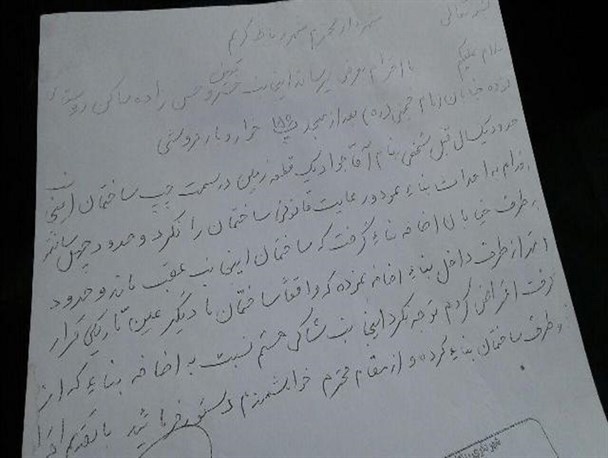 بسمه تعالی
شهردار محترم شهر رباط کریم
سلام علیکم
با احترام بعرض میرساند اینجانب حسن زاده ساکن روستای
خیابان امام خمینی (ره) بعد از مسجد خواروبار فروشی
حدود یکسال قبل شخصی بنام آقا جواد یک قطعه زمین در سمت چپ ساختمان اینجانب
اقدام به احداث بناء نمود و رعایت قانونی ساختمان را نکرد و حدود چهل سانت
بطرف خیابان اضافه بناء گرفت که ساختمان اینجانب عقب ماند و حدود
متر از طرف داخل بناء اضافه نموده که واقعاً ساختمان ما دیگر عین تاریکی قرار
گرفت اعتراض کردم توجه نکرد اینجانب شاکی هستم نسبت به اضافه بناء که از
دو طرف ساختمان بناء کرده و از مقام محترم خواهشمندم دستور فرمائید با تقدیم احترام